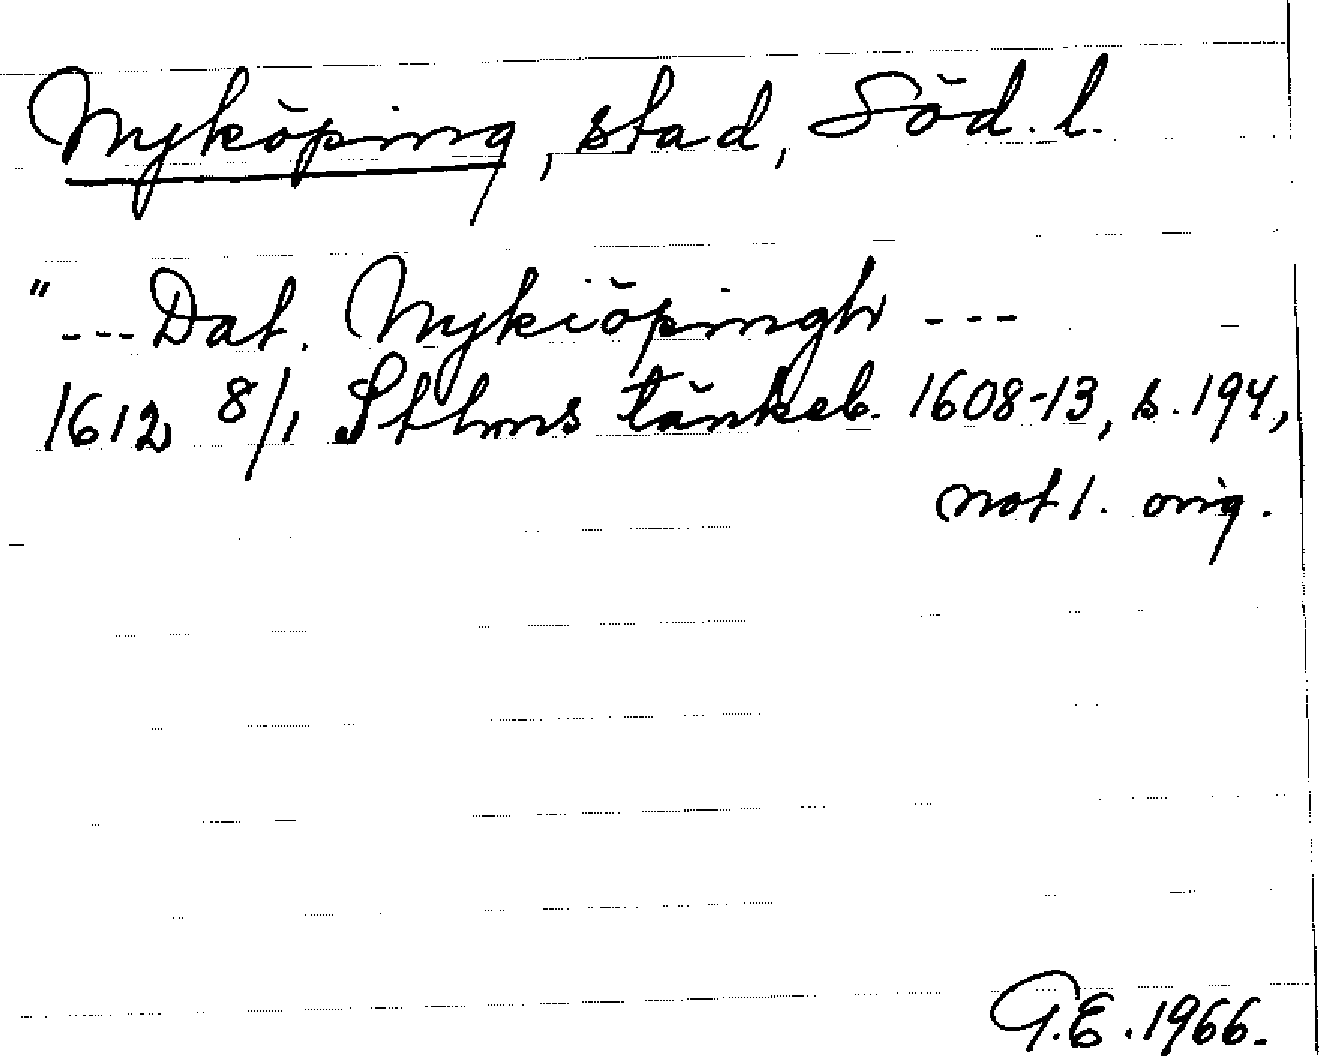 Nyköping, stad, Söd. l.
"---Dat. Nykiöpingh ---
1612 8/1 Sthms tänkeb. 1608-13, s. 194,
not 1. orig.
G.E. 1966.